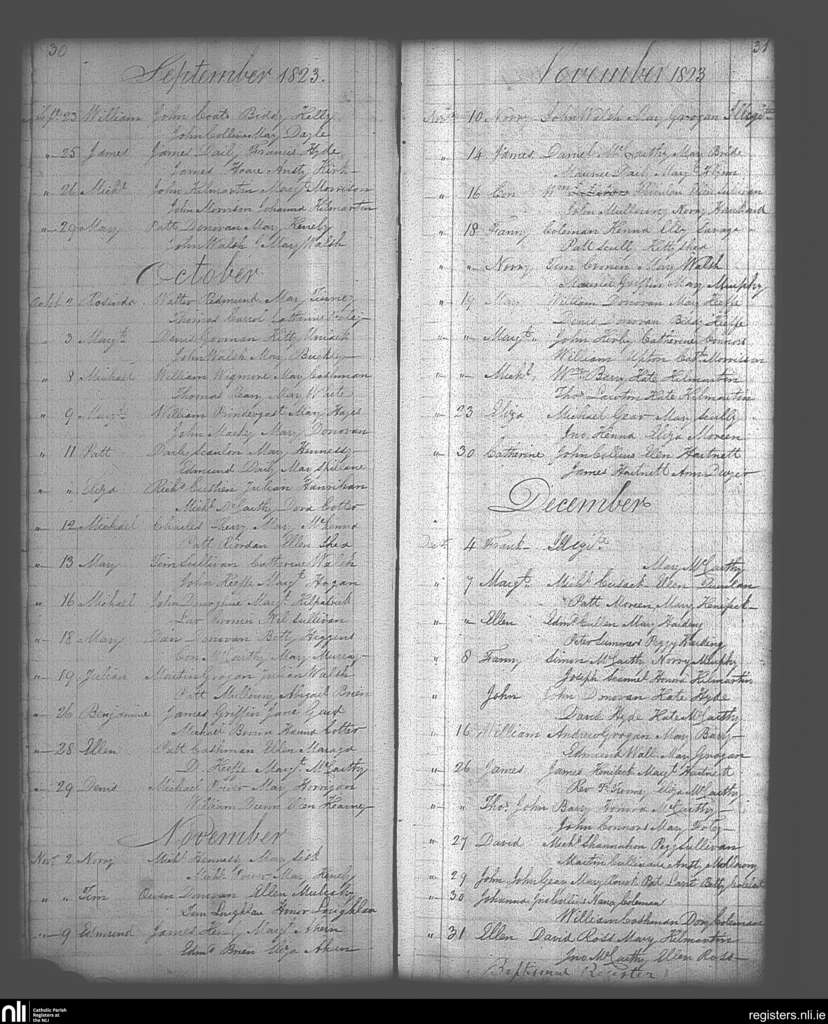 30
September 1823.
Sept. 23 William John Coats Biddy Kelly
John Collins May Dayle
" 25 James James Daily Hyde
James Hoare Ansty Kirk
" 26 Michl. John Kilmartin Margt. Morrison
John Morrison Johanna Kilmartin
" 29 Mary Patt Donovan Mary Henely
John Walsh Mary Walsh
October
Octob. " Rosinda Walter Redmund May
Thomas Carrol Catherine
" 3 Margt. Denis Gorman Kitty
John Walsh May Buckly
" 8 Michael William Wigmore May Cashman
Thomas May White
" 9 Margt. William Prindergast May Hayes
John Mary Donovan
" 11 Patt David Scanlon Mary Hennessy
Edmund Daily May Shillane
" " Eliza Richd. Julian Hanrihan
Michl. McCarthy Dora Cotter
" 12 Michael Charles May McKenna
Patt Riordan Ellen Shea
" 13 Mary Tim Sullivan Catherine Walsh
John Keeffe Margt. Hogan
" 16 Michael John Donoghue Margt. Kilpatrick
Cronin Sullivan
" 18 Mary Dan Donovan Betty Higgens
Con McCarthy May Murray
" 19 Julian Martin Grogan Julian Walsh
Patt Abigael Brien
" 26 Benjamine James Griffin Jane
Michael Hanna Cotter
" 28 Ellen Patt Cashman Ellen
D. Keeffe Margt. McCarthy
" 29 Denis Michael Power May Horrigan
William Ellen Kearney
November
Novr. 2 Norry Michl. Hennessy May
Michl. Power May Henely
" " Tim Owen Donovan Ellen Mulcahy
Tim Loughlan Honor Loughlan
" 9 Edmund James Henry Margt. Ahern
Edmd. Brien Eliza Ahern
31
November 1823
Novr. 10 Norry John Walsh May Grogan Illegite.
" 14 James Daniel McCarthy May Bride
Maurice Dail May Flynn
" 16 Con Wm. Sullivan
John Norry
" 18 Fanny Coleman Kenna Elby Savage
Patt Scully Kitty Shea
" " Norry Tim Cronin May Walsh
Maurice Griffin May Murphy
" 19 May William Donovan May Keeffe
Denis Donovan Biddy Keeffe
" " Margt. John Kirby Catherine Connors
William Upton Cath. Morrison
" " Michl. Wm. Barry Kate Kilmartin
Thos. Kate Kilmartin
" 23 Eliza Michael Gear May Scully
Jno. Kenna Eliza Moreen
" 30 Catherine John Collins Ellen Hartnett
James Hartnett Ann Dwyer
December
Decr. 4 Frank Illegite.
May McCarthy
" 7 Margt. Michl. Cusack Ellen
Patt Moreen Mary Henifeck
" " Ellen Edmd. Cullen May Harding
Peter Summers Peggy Harding
" 8 Fanny Simon McCarthy Norry Murphy
Joseph Honora Kilmartin
" John John Donovan Kate Hyde
David Hyde Kate McCarthy
" 16 William Andrew Grogan May Barry
Edmund Wall May Grogan
" 26 James James Henifeck Margt. Hartnett
Rev. Eliza McCarthy
" " Thos. John Barry Honora McCarthy
John Connors May Foley
" 27 David Michl. Shannahan Peggy Sullivan
Martin Sullivan
" 29 John John Gear May Patt Betty
" 30 Johanna Nano Coleman
William Cashman Dory Coleman
" 31 Ellen David Ross Mary Kilmartin
Jno. McCarthy Ellen Ross
Baptismal Register
nli
Catholic Parish
Registers at
the NLI
registers.nli.ie